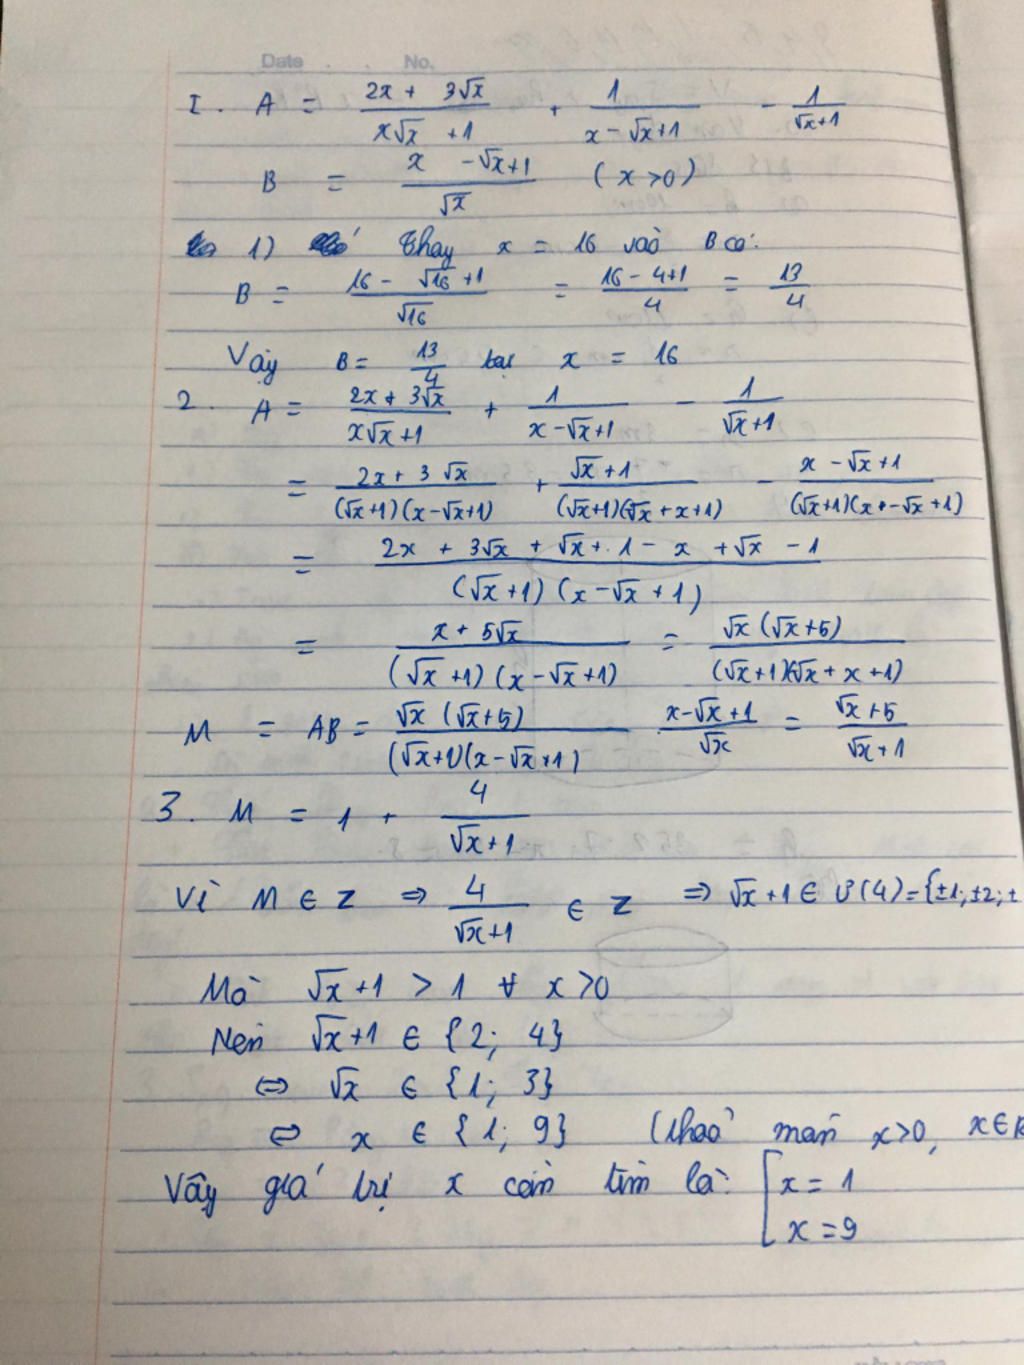 Date . . No.
I. A = \frac{2x + 3\sqrt{x}}{x\sqrt{x} + 1} + \frac{1}{x - \sqrt{x} + 1} - \frac{1}{\sqrt{x} + 1}
B = \frac{x - \sqrt{x} + 1}{\sqrt{x}} (x > 0)
1) Thay x = 16 vào B có:
B = \frac{16 - \sqrt{16} + 1}{\sqrt{16}} = \frac{16 - 4 + 1}{4} = \frac{13}{4}
Vậy B = \frac{13}{4} tại x = 16
2. A = \frac{2x + 3\sqrt{x}}{x\sqrt{x} + 1} + \frac{1}{x - \sqrt{x} + 1} - \frac{1}{\sqrt{x} + 1}
= \frac{2x + 3\sqrt{x}}{(\sqrt{x} + 1)(x - \sqrt{x} + 1)} + \frac{\sqrt{x} + 1}{(\sqrt{x} + 1)(\sqrt{x} + x + 1)} - \frac{x - \sqrt{x} + 1}{(\sqrt{x} + 1)(x + - \sqrt{x} + 1)}
= \frac{2x + 3\sqrt{x} + \sqrt{x} + 1 - x + \sqrt{x} - 1}{(\sqrt{x} + 1)(x - \sqrt{x} + 1)}
= \frac{x + 5\sqrt{x}}{(\sqrt{x} + 1)(x - \sqrt{x} + 1)} = \frac{\sqrt{x}(\sqrt{x} + 5)}{(\sqrt{x} + 1)(\sqrt{x} + x + 1)}
M = AB = \frac{\sqrt{x}(\sqrt{x} + 5)}{(\sqrt{x} + 1)(x - \sqrt{x} + 1)} \frac{x - \sqrt{x} + 1}{\sqrt{x}} = \frac{\sqrt{x} + 5}{\sqrt{x} + 1}
3. M = 1 + \frac{4}{\sqrt{x} + 1}
Vì M ∈ Z ⇒ \frac{4}{\sqrt{x} + 1} ∈ Z ⇒ \sqrt{x} + 1 ∈ Ư(4) = {±1; ±2; ±
Mà \sqrt{x} + 1 > 1 ∀ x > 0
Nên \sqrt{x} + 1 ∈ {2; 4}
⇔ \sqrt{x} ∈ {1; 3}
⇔ x ∈ {1; 9} (thoả mãn x > 0, x ∈
Vậy giá trị x cần tìm là: [x = 1
x = 9